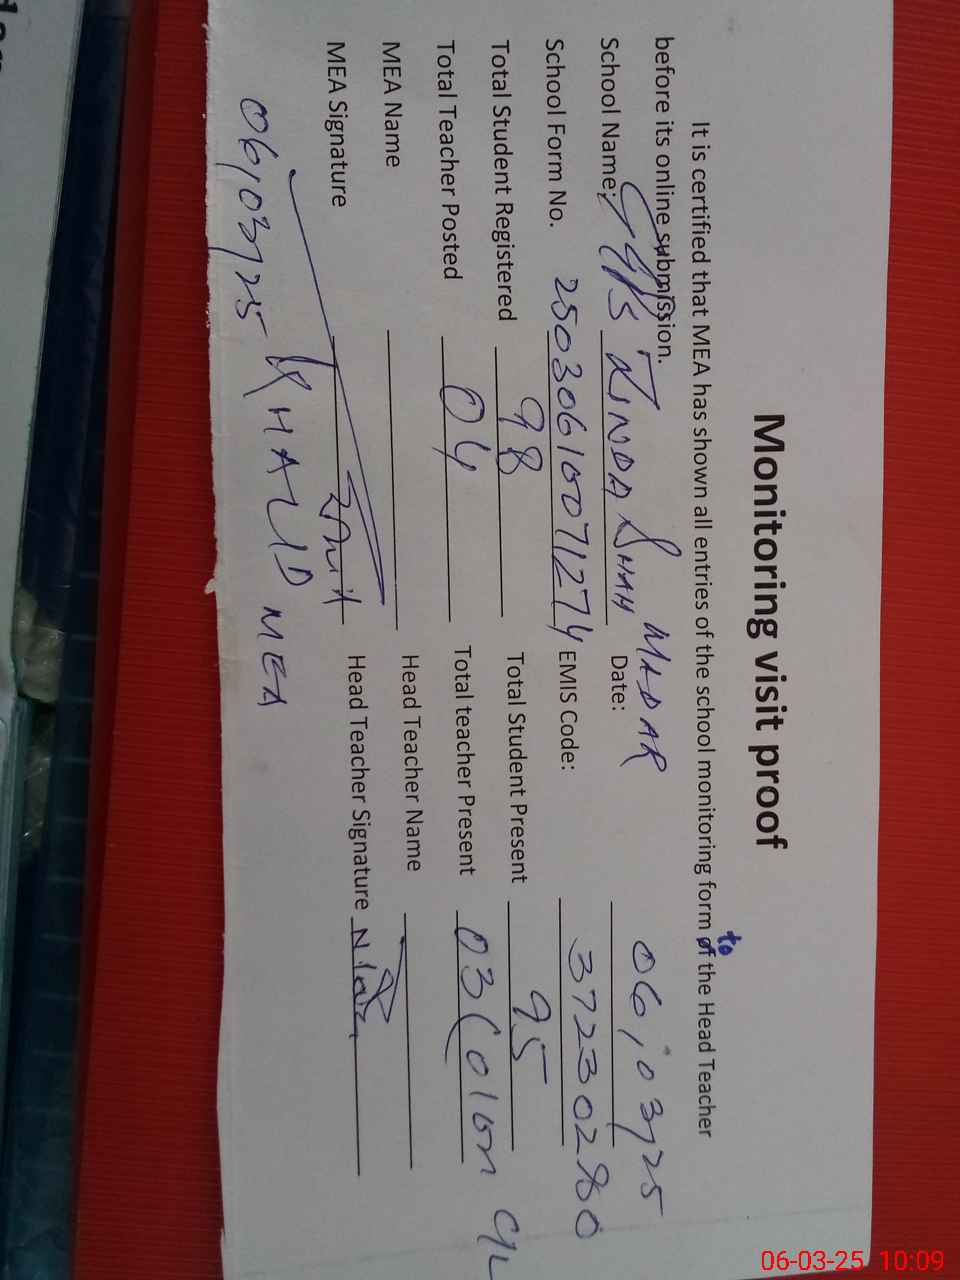 Monitoring visit proof
It is certified that MEA has shown all entries of the school monitoring form to the Head Teacher
before its online submission.
School Name: GGPS ZINDA SHAH MADAR Date: 06,03/25
School Form No. 25030610071274 EMIS Code: 37230280
Total Student Registered 98 Total Student Present 95
Total Teacher Posted 04 Total teacher Present 03 (01 on CL
MEA Name Head Teacher Name
MEA Signature Head Teacher Signature
06,03/25 KHALID MEA
06-03-25 10:09